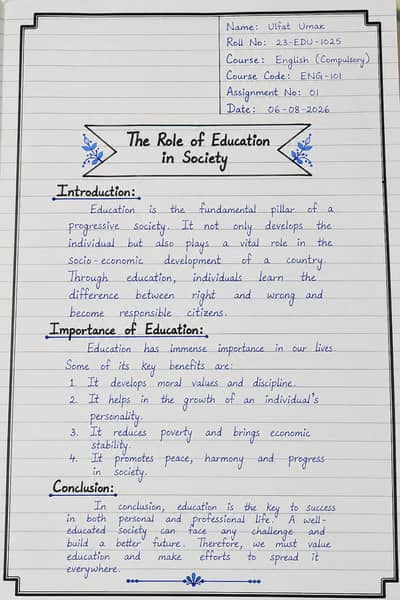 Name: Ulfat Umar
Roll No: 23-EDU-1025
Course: English (Compulsory)
Course Code: ENG-101
Assignment No: 01
Date: 06-08-2026
The Role of Education
in Society
Introduction:
Education is the fundamental pillar of a
progressive society. It not only develops the
individual but also plays a vital role in the
socio-economic development of a country.
Through education, individuals learn the
difference between right and wrong and
become responsible citizens.
Importance of Education:
Education has immense importance in our lives.
Some of its key benefits are:
1. It develops moral values and discipline.
2. It helps in the growth of an individual's
personality.
3. It reduces poverty and brings economic
stability.
4. It promotes peace, harmony and progress
in society.
Conclusion:
In conclusion, education is the key to success
in both personal and professional life. A well-
educated society can face any challenge and
build a better future. Therefore, we must value
education and make efforts to spread it
everywhere.